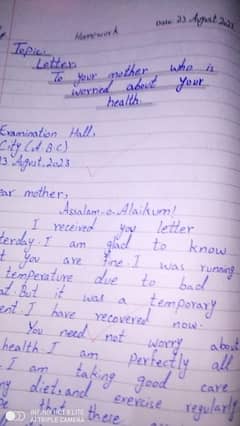 Homework
Date: 23 August 2023
Topic:
Letter
To your mother who is
worried about your
health.
Examination Hall,
City (A.B.C)
23 August, 2023
ear mother,
Assalam-o-Alaikum!
I received you letter
terday. I am glad to know
t you are fine. I was running
temperature due to bad
at. But it was a temporary
ent. I have recovered now.
You need not worry about
health. I am perfectly all
I am taking good care
diet, and exercise regularly
that these
INFINIX HOT 8 LITE
AI TRIPLE CAMERA